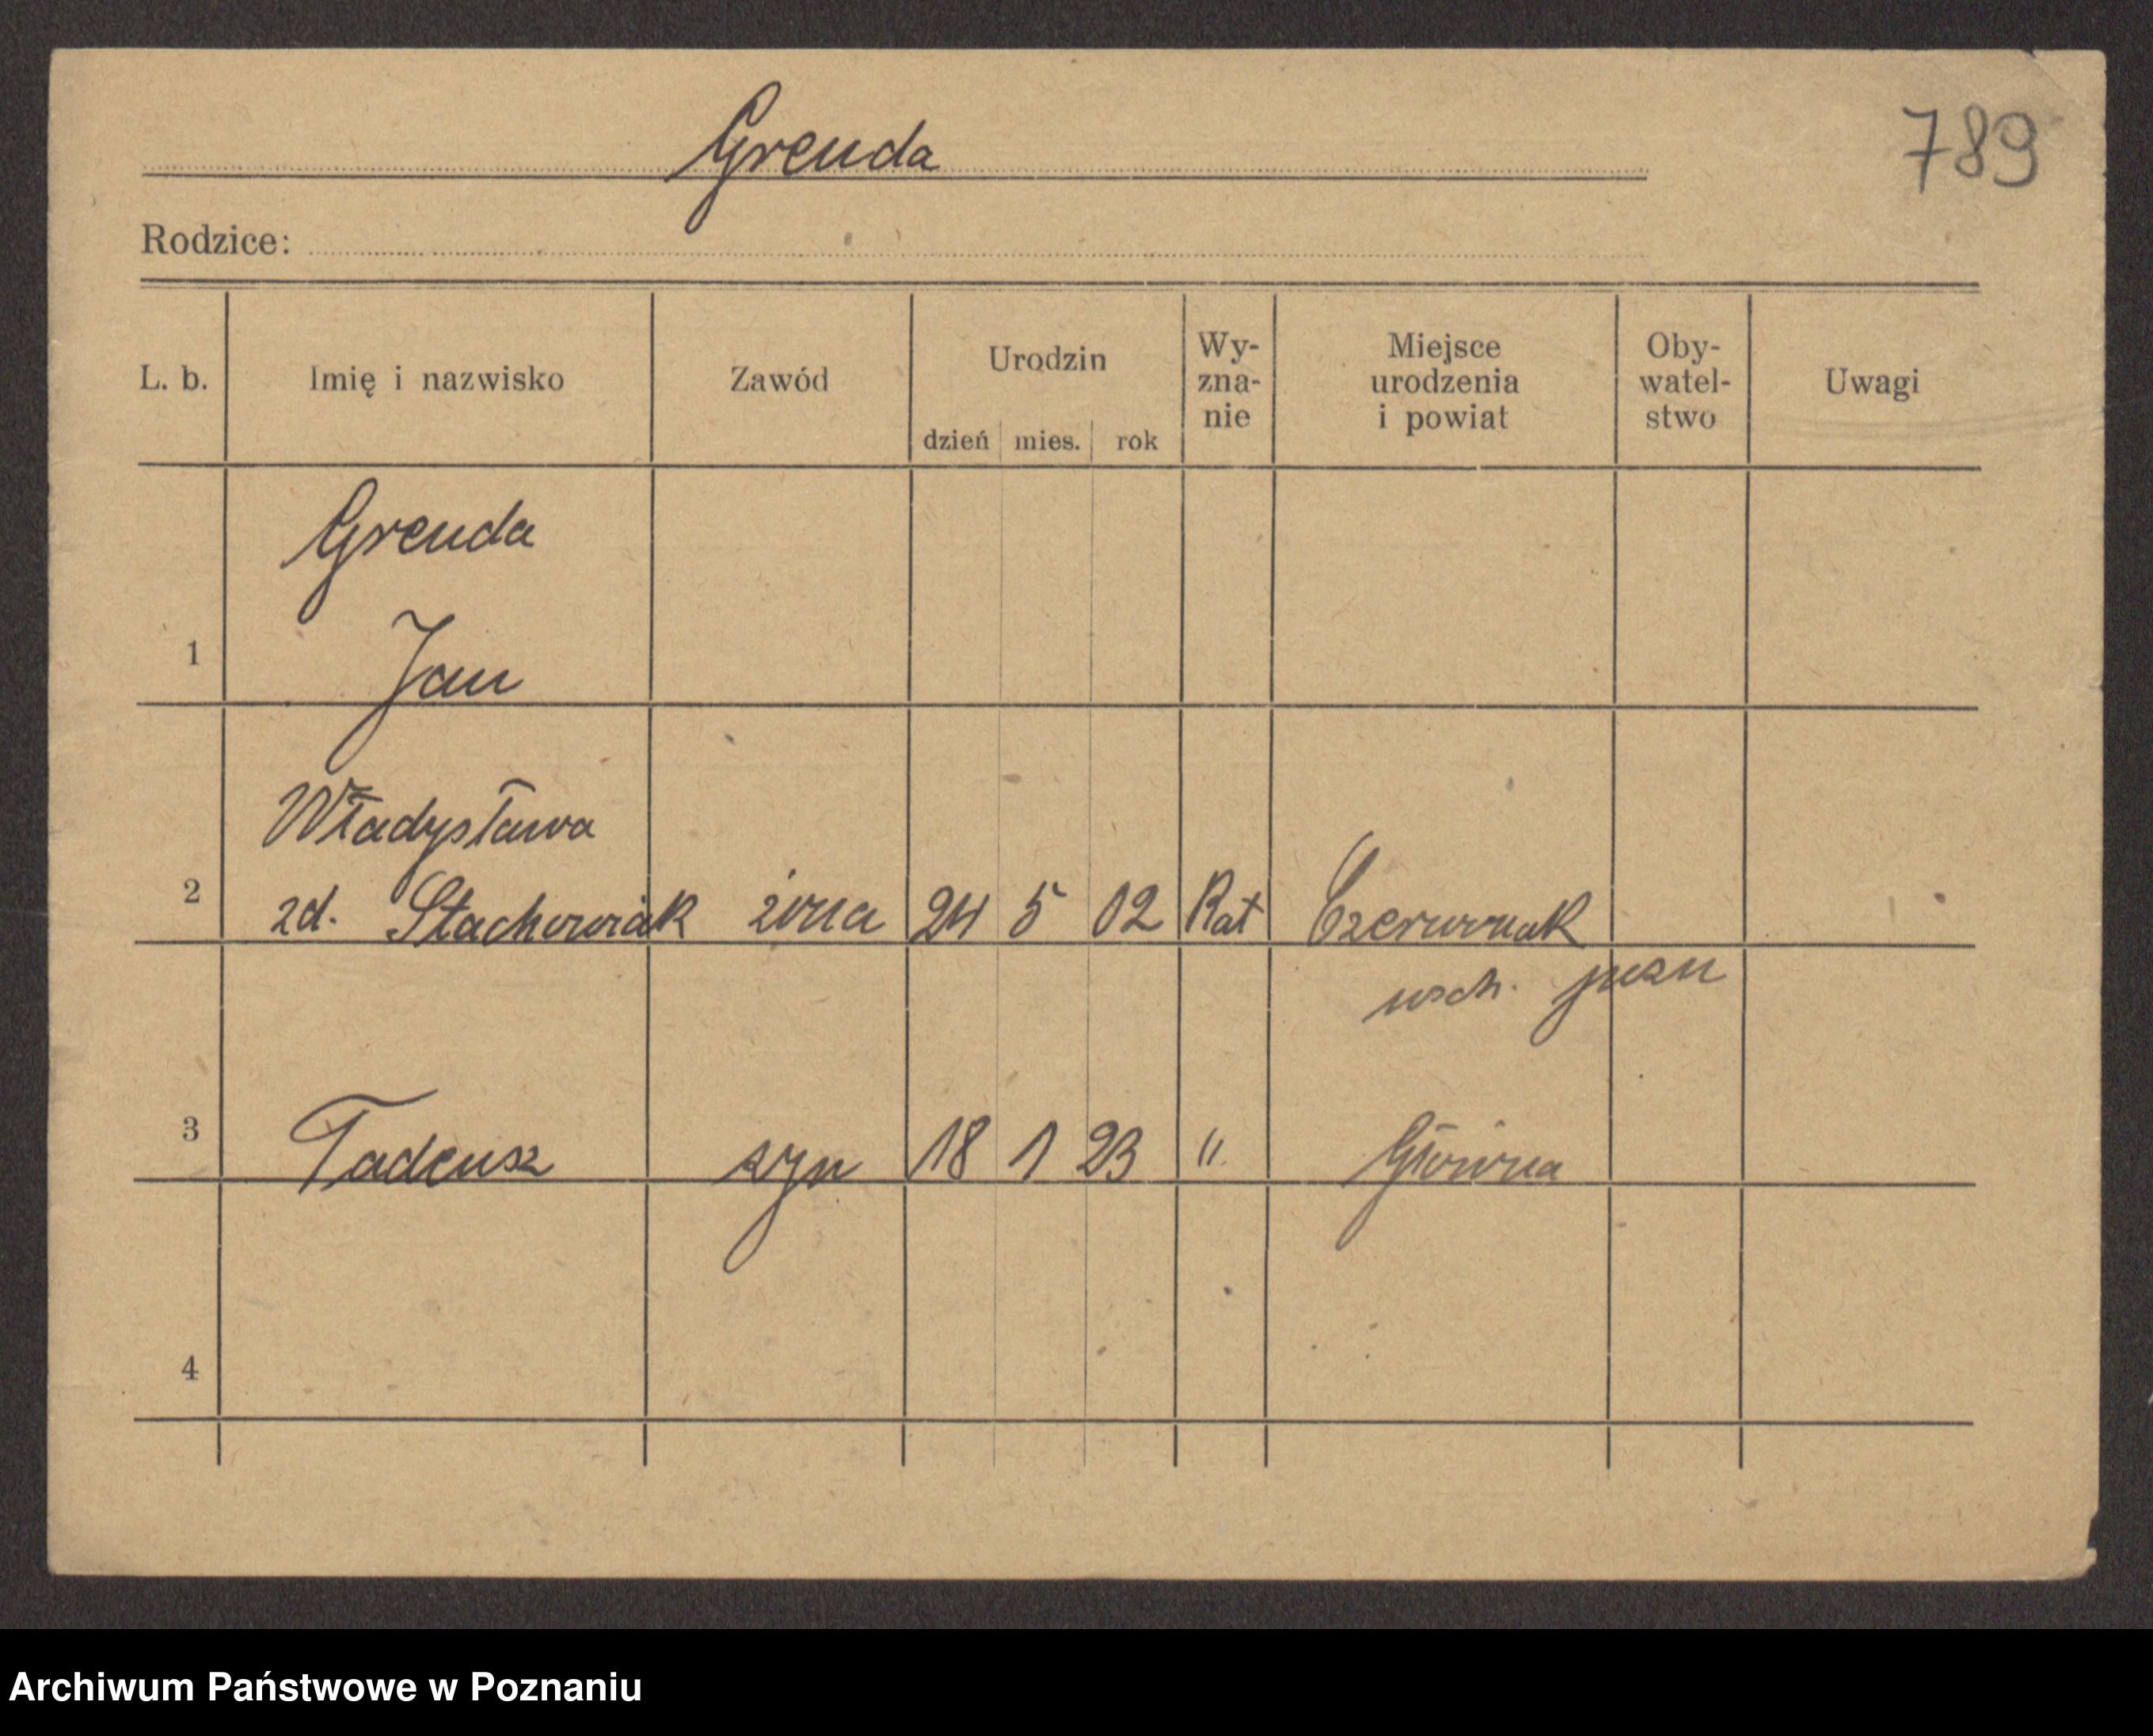 Grenda
789
Rodzice:
L. b.
Imię i nazwisko
Zawód
Urodzin
dzień mies. rok
Wy-
zna-
nie
Miejsce
urodzenia
i powiat
Oby-
watel-
stwo
Uwagi
Grenda
1 Jan
Władysława
2 zd. Stachowiak żona 24 5 02 Kat Czerwonak
wsch. pozn
3 Tadeusz syn 18 1 23 " Główna
4
Archiwum Państwowe w Poznaniu